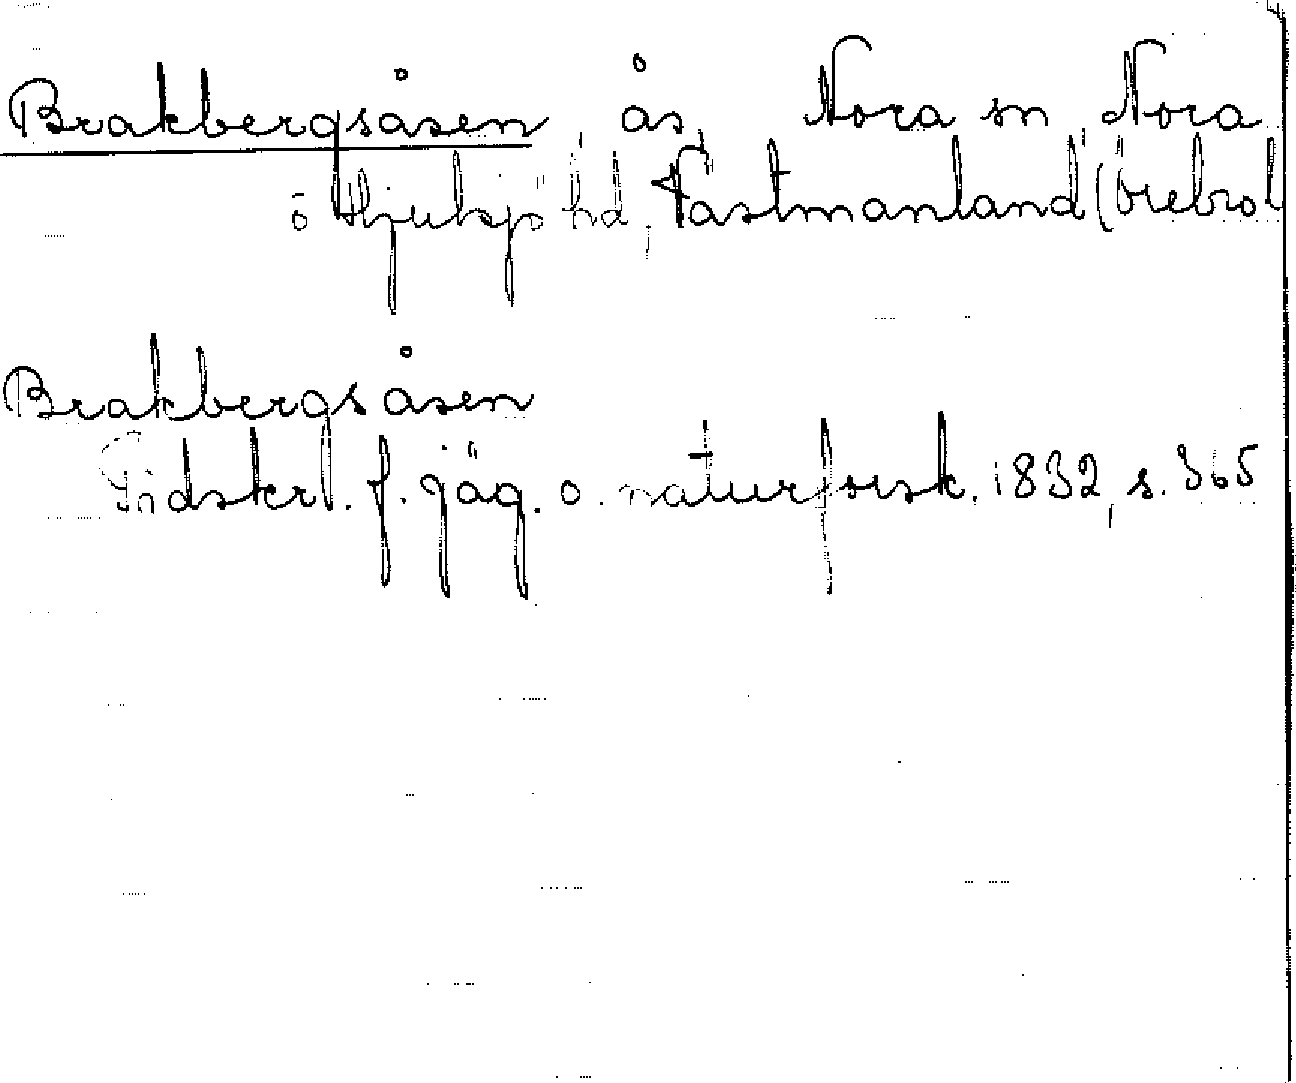 Brakbergsåsen, ås, Nora sn Nora
o Hjulsjö hd, Västmanland (Örebro l
Brakbergsåsen
Tidskr. f. jäg. o. naturforsk. 1832, s. 365